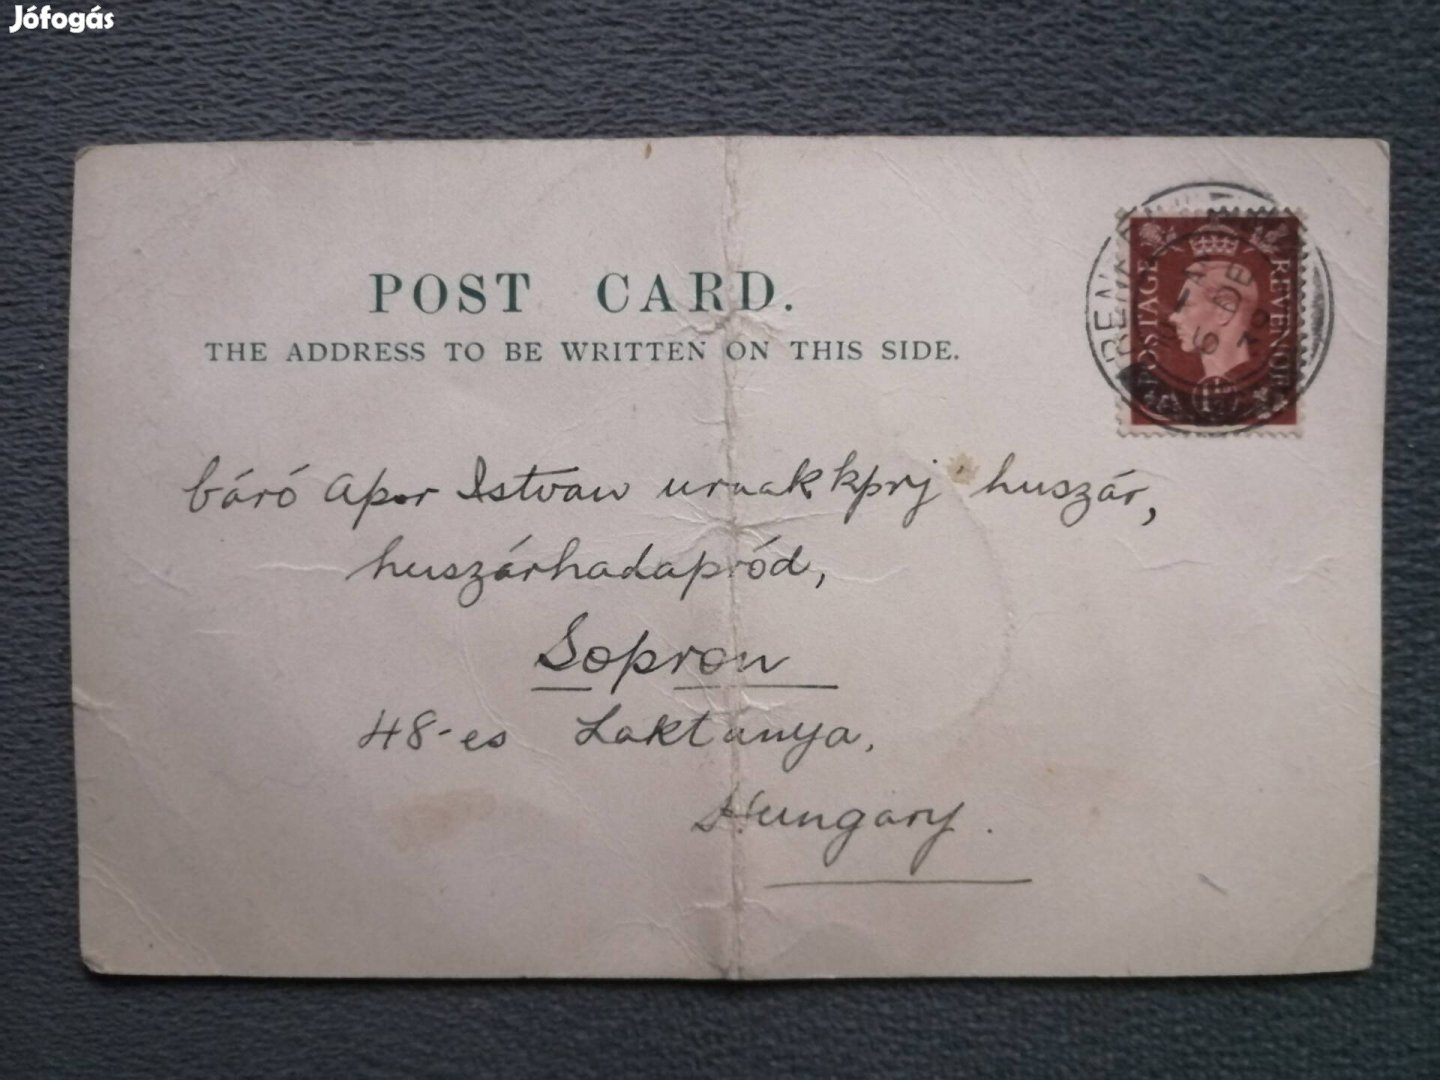 Jófogás
POST CARD.
THE ADDRESS TO BE WRITTEN ON THIS SIDE.
POSTAGE
REVENUE
6 DE
báró Apor Istvan urnak kprj huszár,
huszárhadapród,
Sopron
48-es Laktanya.
Hungary.